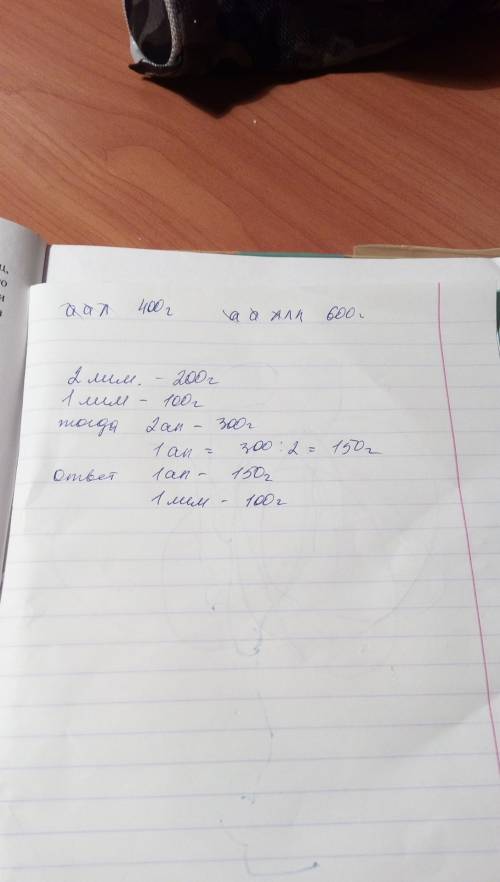 ц,
ю
и
а
аал 400г аа ллл 600г
2 лим. - 200г
1 лим - 100г
тогда 2ап - 300г
1ап = 300 : 2 = 150г
ответ 1ап - 150г
1 лим - 100г